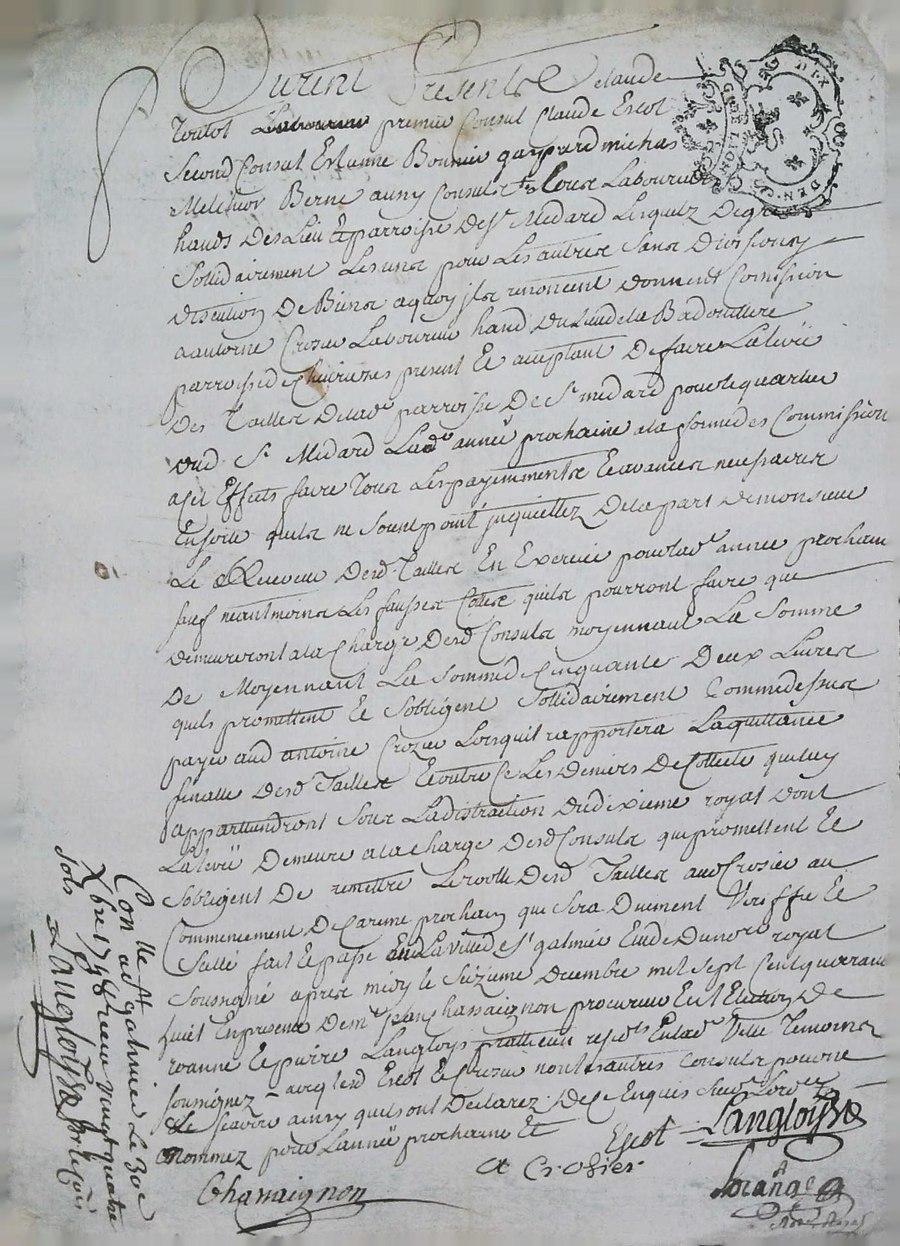 Furent Presents Claude
Toulot Laboureur premier Consul Claude Escot
Second Consul Estienne Bonnier gaspard michas
Melchior Berne aussy Consuls tous Laboureurs
hands des Lieu & parroisse de St Medard Lesquelz De gre
Sollidairement Les uns pour Les autres sans Division ny
discution De Biens a quoy ils renoncent donnent Comission
a antoine Crozier Laboureur hant du Lieu de la Badouillere
parroisse de present Et acceptant De faire La levée
Des Tailles De lad parroisse De St medard pour le quartier
dud St Medard Lad année prochaine a la forme des Commissions
a cet Effects faire Tous Les payemments & avances necessaires
En sorte quils ne soient point inquiettez De la part De monsieur
Le Receveur Desd Tailles En Exercice pour lad année prochaine
sauf neantmoins Les fausses Cottes quils pourront faire que
demeureront a la Charge Desd Consuls moyennant La Somme
De Moyennant La Somme de Cinquante Deux Livres
quils promettent Et Sobligent Sollidairement Comme dessus
payer aud antoine Crozier Lorsquil rapportera La quittance
finalle Desd Tailles Et outre ce Les Deniers De Collecte que luy
appartiendront Sous La distraction du dixieme royal dont
La levée Demeure a la charge Desd Consuls que promettent Et
Sobligent De remettre Le rolle Desd Tailles aud Crosier au
Commencement De Careme prochain que Sera Duement Veriffié Et
Scellé fait Et passé En La Ville de St galmier Etude Du nore royal
Soussigné apres midy le Seizieme Decembre mil Sept Cent quarante
huit En presence De mr jean Chassaignon procureur En l Election De
roanne Et pierre Langloys pratticien En lad Ville Temoins
soussignez avec lesd Escot Et Crosier non Les autres Consuls pour ne
Le Scavoir ainsy quils ont Declarez De Ce Enquis
nommez pour L'année prochaine Et Escot Langloisse
A Crosier
Chassaignon
Con lle a St galmier Le 30e
Xbre 1748 Receu vingt quatre
sols Langloisse